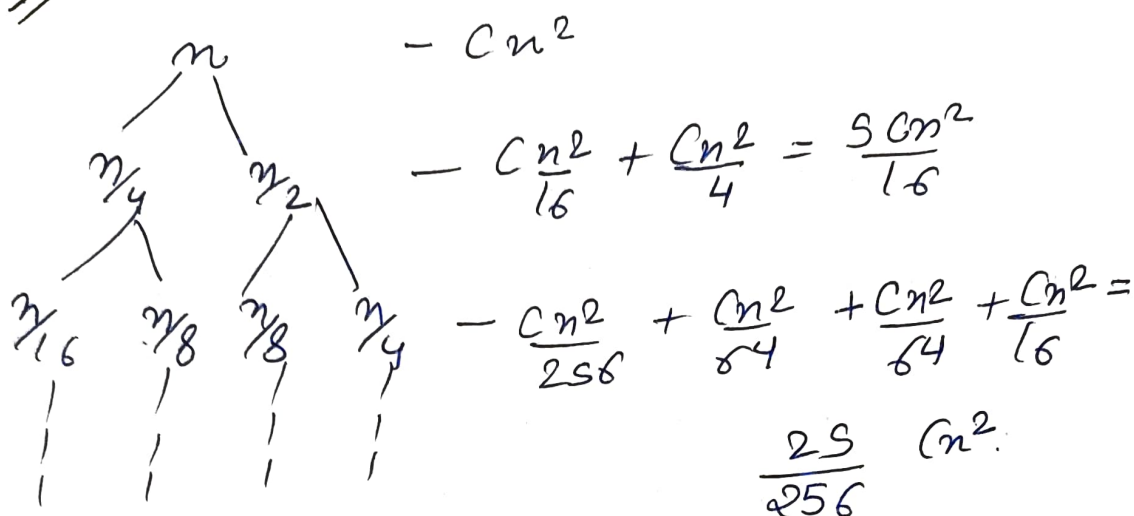 n - Cn²
n/4 n/2 - Cn²/16 + Cn²/4 = 5Cn²/16
n/16 n/8 n/8 n/4 - Cn²/256 + Cn²/64 + Cn²/64 + Cn²/16 =
25/256 Cn².